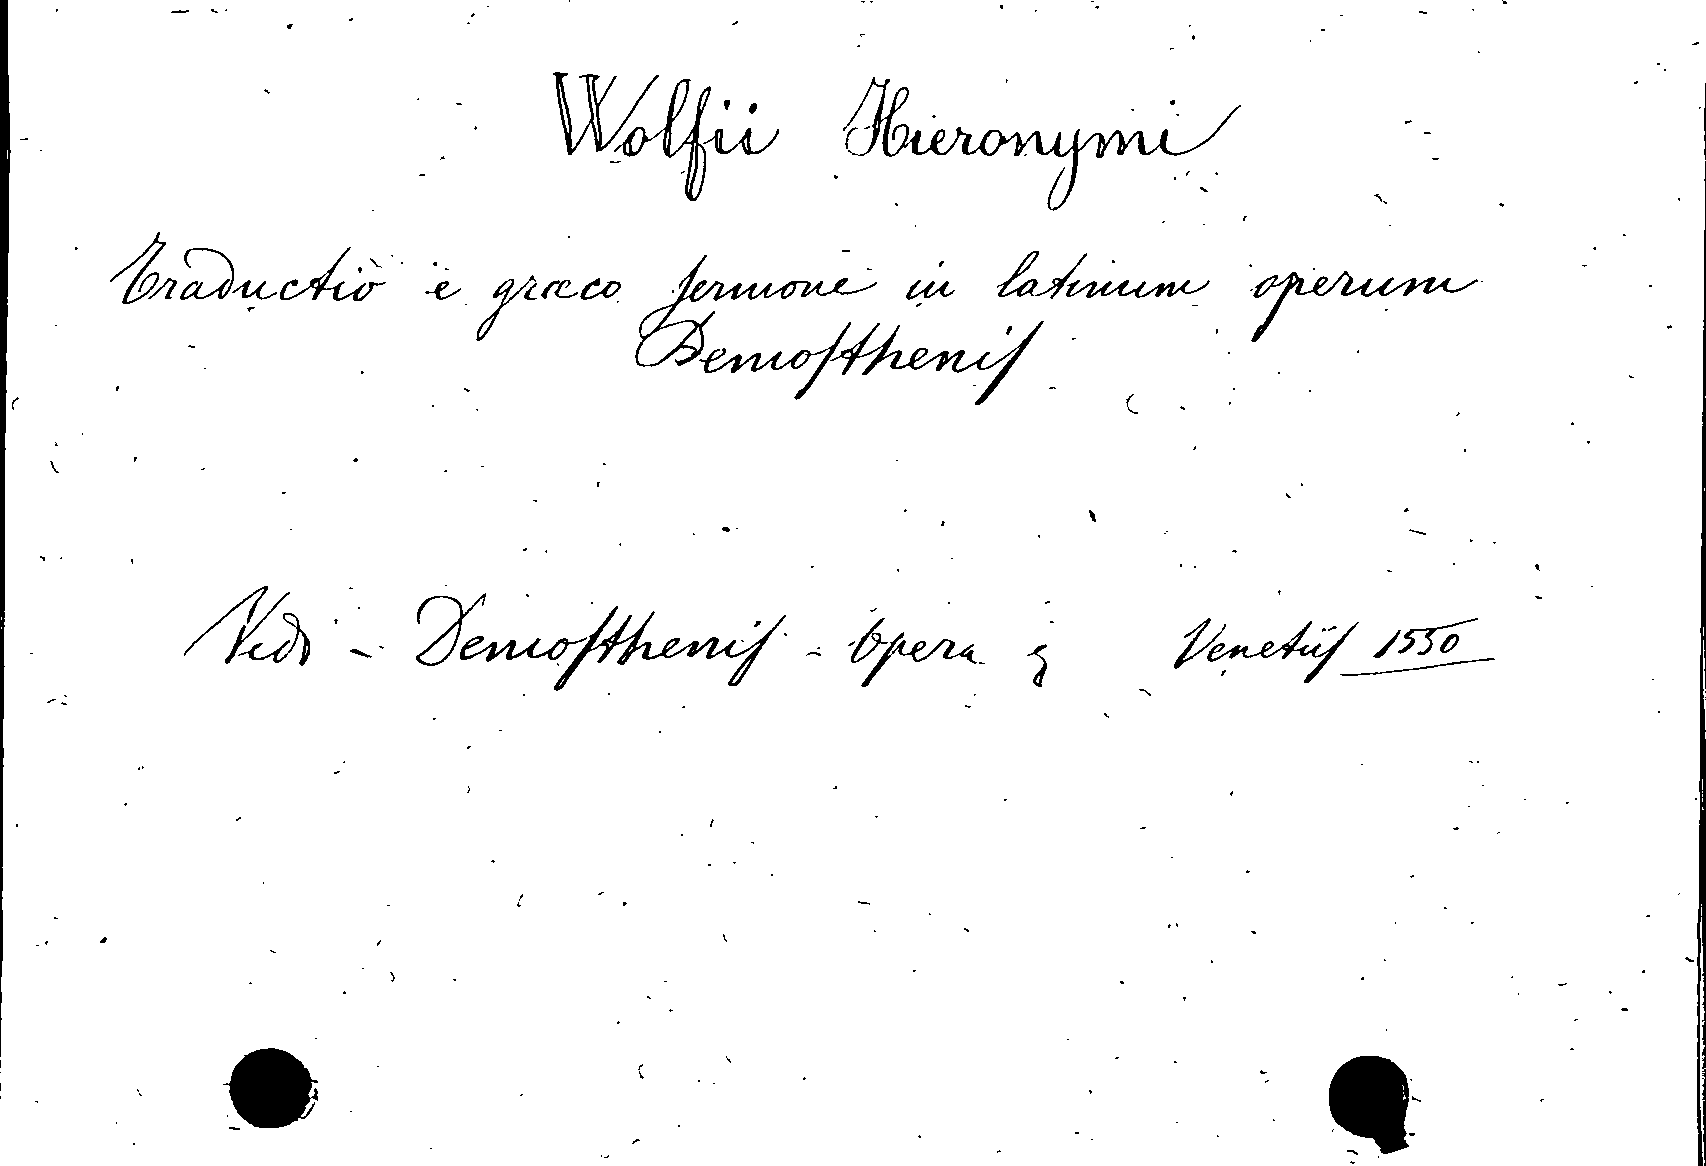 Wolfii Hieronymi
Traductio e græco sermone in latinum operum
Demosthenis
Vedi - Demosthenis - Opera Venetiis 1550